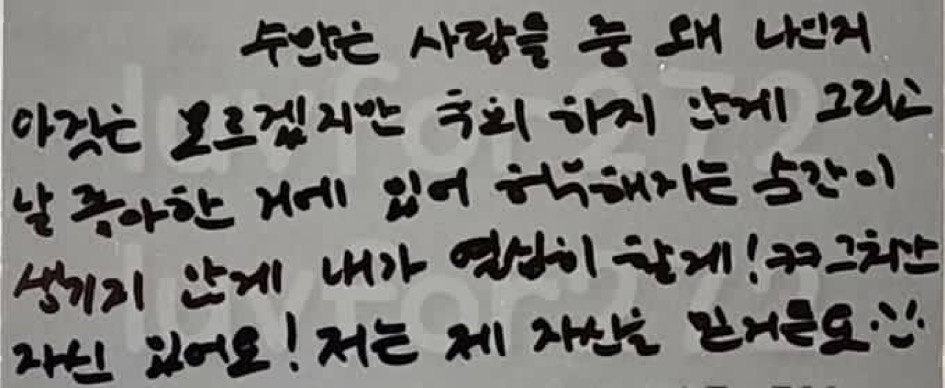 수많은 사람들 중 왜 나인지
아직은 모르겠지만 후회 하지 않게 그리고
날 좋아한 거에 있어 허무해지는 순간이
생기지 않게 내가 열심히 할게! ㅋㅋ 그치만
자신 있어요! 저는 제 자신을 믿거든요
luvfor272
luvfor272